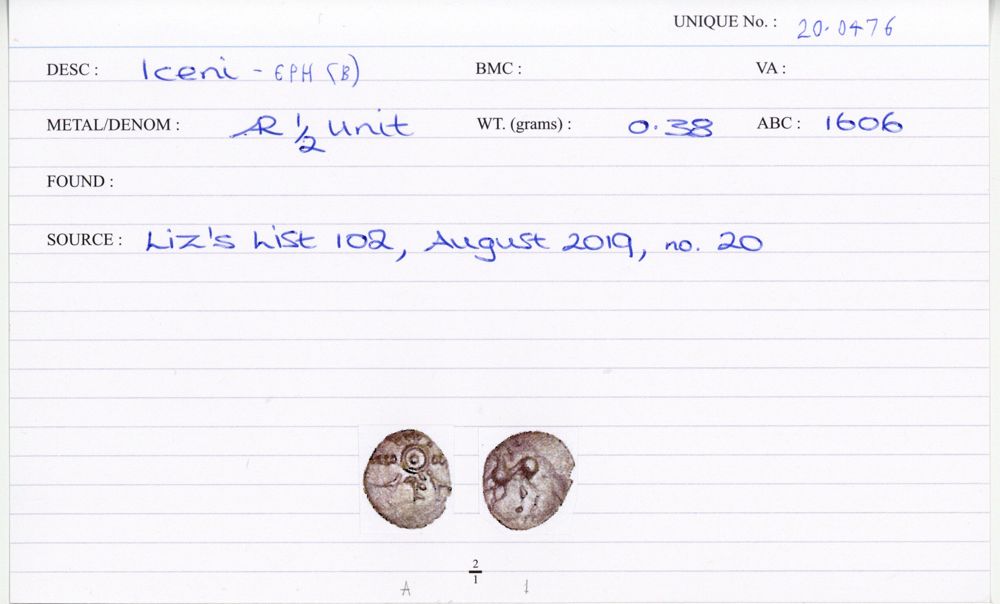 UNIQUE No. : 20.0476
DESC : Iceni - EPH (B) BMC : VA :
METAL/DENOM : AR 1/2 unit WT. (grams) : 0.38 ABC : 1606
FOUND :
SOURCE : Liz's List 102, August 2019, no. 20
2
1
A 1